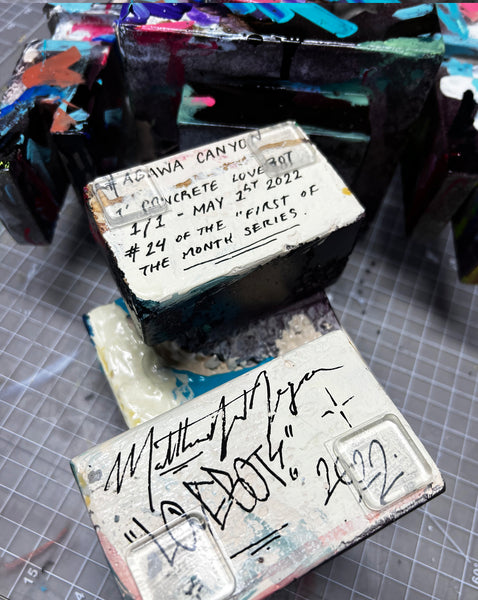 AGAWA CANYON
CONCRETE LOVEBOT
1/1 - MAY 1ST 2022
#24 OF THE "FIRST OF
THE MONTH SERIES.
Matthew Del Degan
"LOVEBOTS"
2022.
15